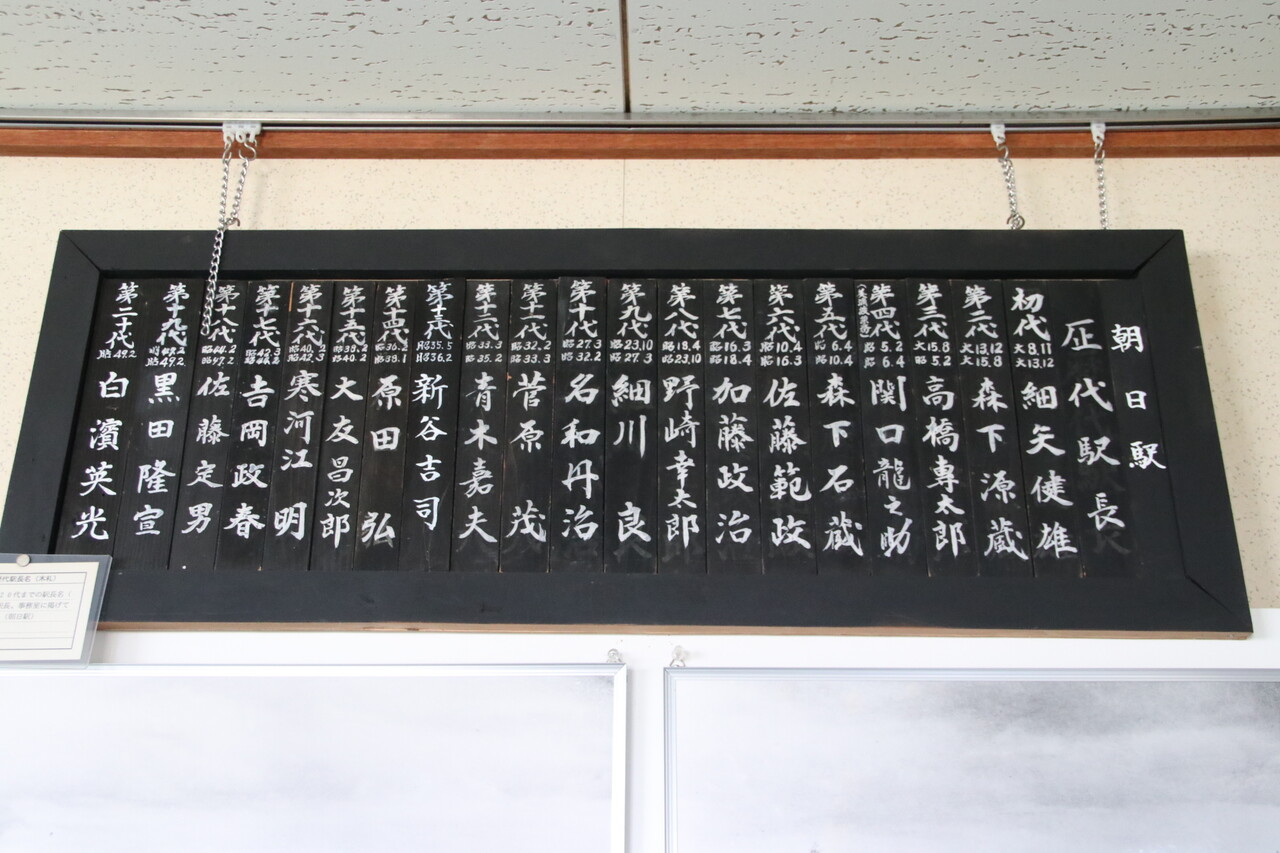 朝日駅
歴代駅長
初代 大8.11 大13.12 細矢健雄
第二代 大13.12 大15.8 森下源蔵
第三代 大15.8 昭5.2 高橋専太郎
第四代 昭5.2 昭6.4 関口龍之助
第五代 昭6.4 昭10.4 森下石蔵
第六代 昭10.4 昭16.3 佐藤範政
第七代 昭16.3 昭18.4 加藤政治
第八代 昭18.4 昭23.10 野崎幸太郎
第九代 昭23.10 昭27.3 細川良
第十代 昭27.3 昭32.2 名和丹治
第十一代 昭32.2 昭33.3 菅原茂
第十二代 昭33.3 昭35.2 青木嘉夫
第十三代 昭35.5 昭36.2 新谷吉司
第十四代 昭36.2 昭39.1 原田弘
第十五代 昭39.2 昭40.2 大友昌次郎
第十六代 昭40.2 昭42.3 寒河江明
第十七代 昭42.3 吉岡政春
第十八代 昭47.2 佐藤定男
第十九代 昭49.2 黒田隆宣
第二十代 昭49.2 白濱英光
代駅長名(木札)
0代までの駅長名(
長、事務室に掲げて
(朝日駅)